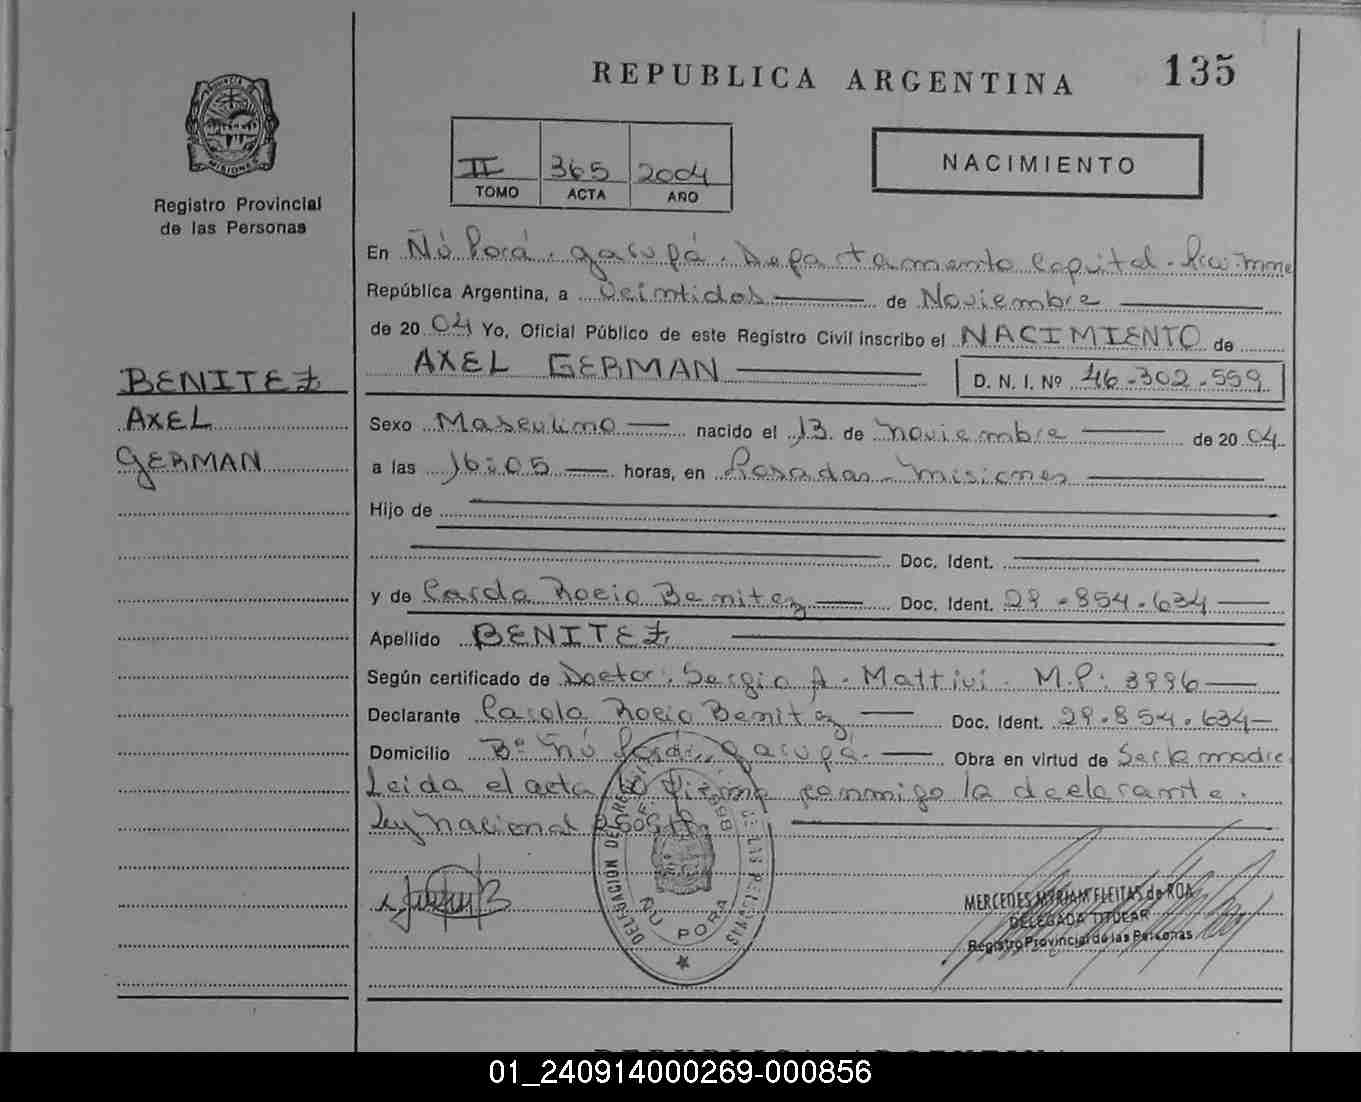 REPUBLICA ARGENTINA
135
PROVINCIA DE MISIONES
Registro Provincial
de las Personas
II 365 2004
TOMO ACTA AÑO
NACIMIENTO
En Ñú Porá. Garupá. Departamento Capital.
República Argentina, a Veintidos de Noviembre
de 2004 Yo, Oficial Público de este Registro Civil inscribo el NACIMIENTO de
AXEL GERMAN D. N. I. Nº 46.302.559
BENITEZ
AXEL
GERMAN
Sexo Masculino nacido el 13 de noviembre de 2004
a las 16:05 horas, en Posadas - Misiones
Hijo de
Doc. Ident.
y de Carola Rocio Benitez Doc. Ident. 29.854.634
Apellido BENITEZ
Según certificado de Doctor: Sergio A. Mattivi. M.P: 3996
Declarante Carola Rocio Benitez Doc. Ident. 29.854.634
Domicilio Bº Ñú Porá, Garupá. Obra en virtud de Ser la madre
Leida el acta la firma conmigo la declarante.
Ley Nacional
DELEGACION DE LAS PERSONAS
ÑU PORA
MERCEDES MYRIAM FLEITAS de ROA
DELEGADA TITULAR
Registro Provincial de las Personas
01_240914000269-000856